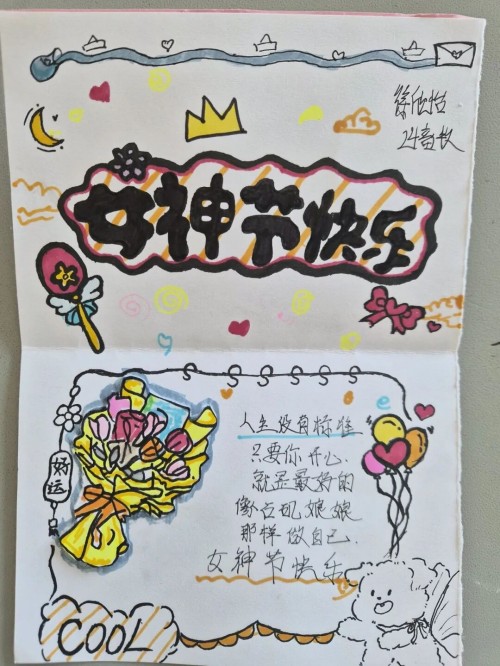 24畜牧
女神节快乐
人生没有标准
只要你开心、
就是最好的
像 娘娘
那样做自己.
女神节快乐
好运
COOL